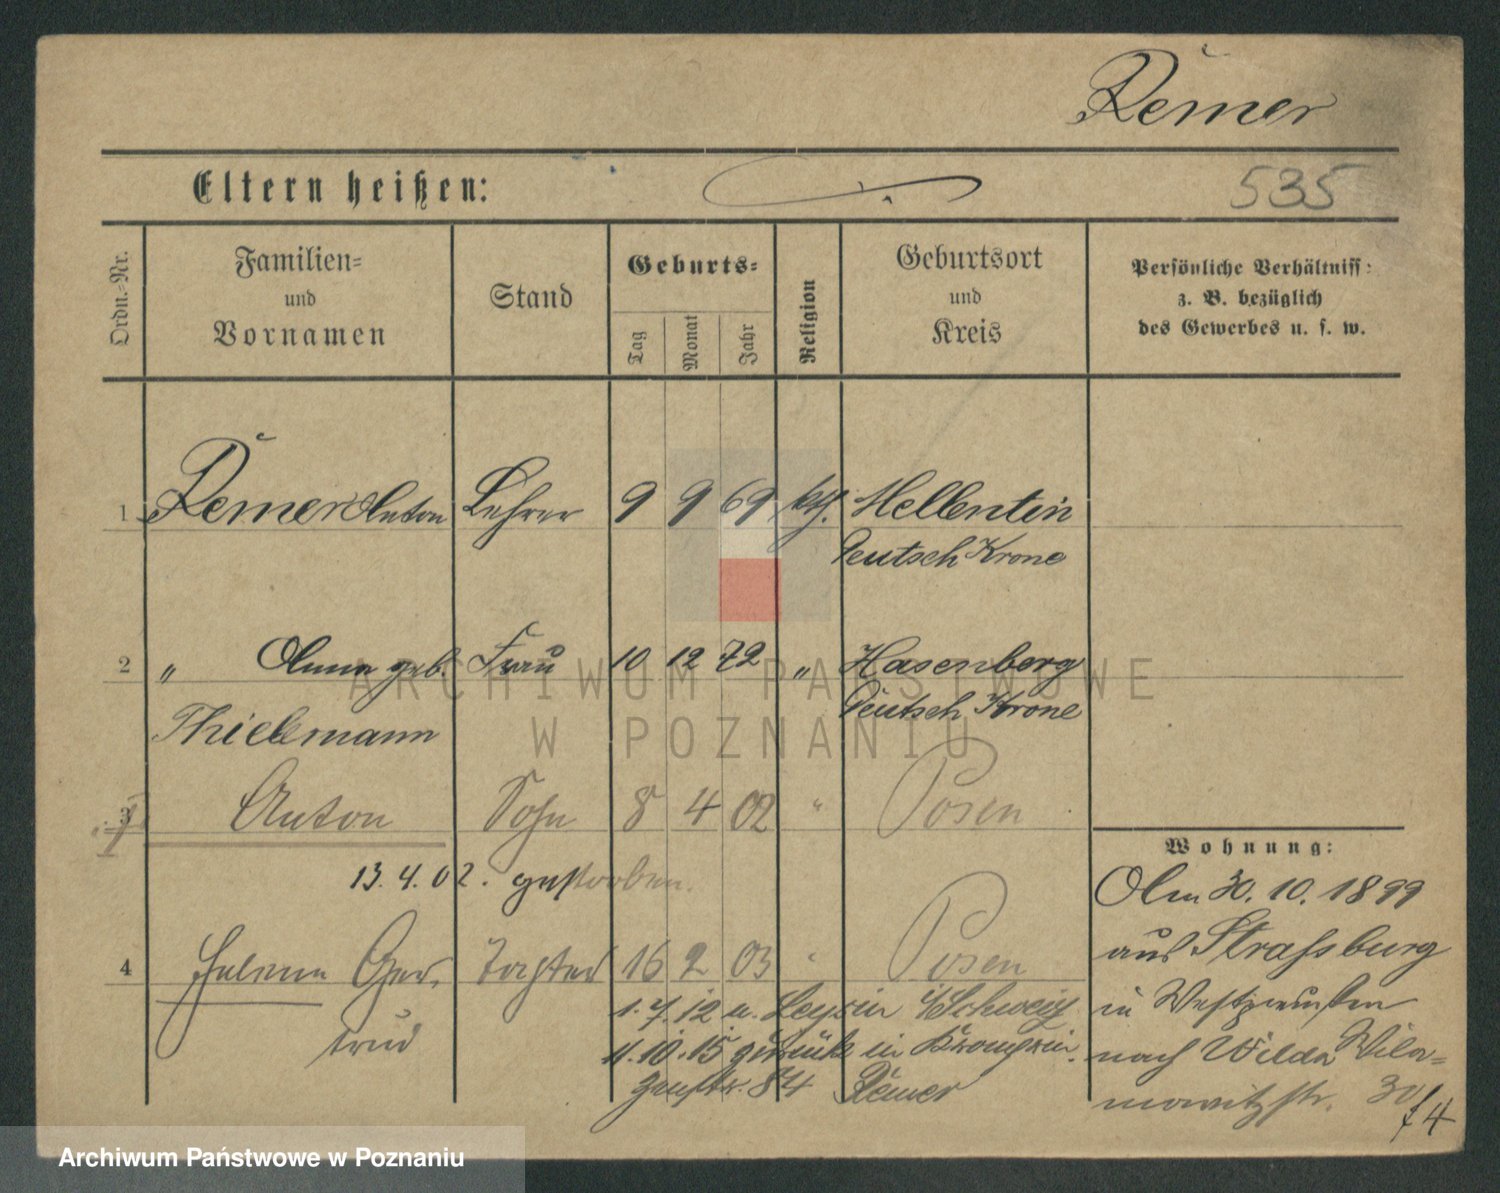 Remer
Eltern heißen:
535
Ordn.-Nr.
Familien-
und
Vornamen
Stand
Geburts-
Tag
Monat
Jahr
Religion
Geburtsort
und
Kreis
Persönliche Verhältniss:
z. B. bezüglich
des Gewerbes u. s. w.
1 Remer Anton Lehrer 9 9 69 kth. Mellentin
Deutsch Krone
2 " Anna geb. Frau 10 12 72 " Hasenberg
Thielemann
Deutsch Krone
3 Anton Sohn 8 4 02 " Posen
13.4.02. gestorben.
4 Helena Ger- Tochter 16 2 03 " Posen
trud
1.7.12 n. Leyzin i/Schweiz
11.10.15 zurück in
84 Remer
Wohnung:
Am 30. 10. 1899
aus Strassburg
in Westpreußen
nach Wilda Wila-
mowitzstr. 30
74
ARCHIWUM PAŃSTWOWE
W POZNANIU
Archiwum Państwowe w Poznaniu